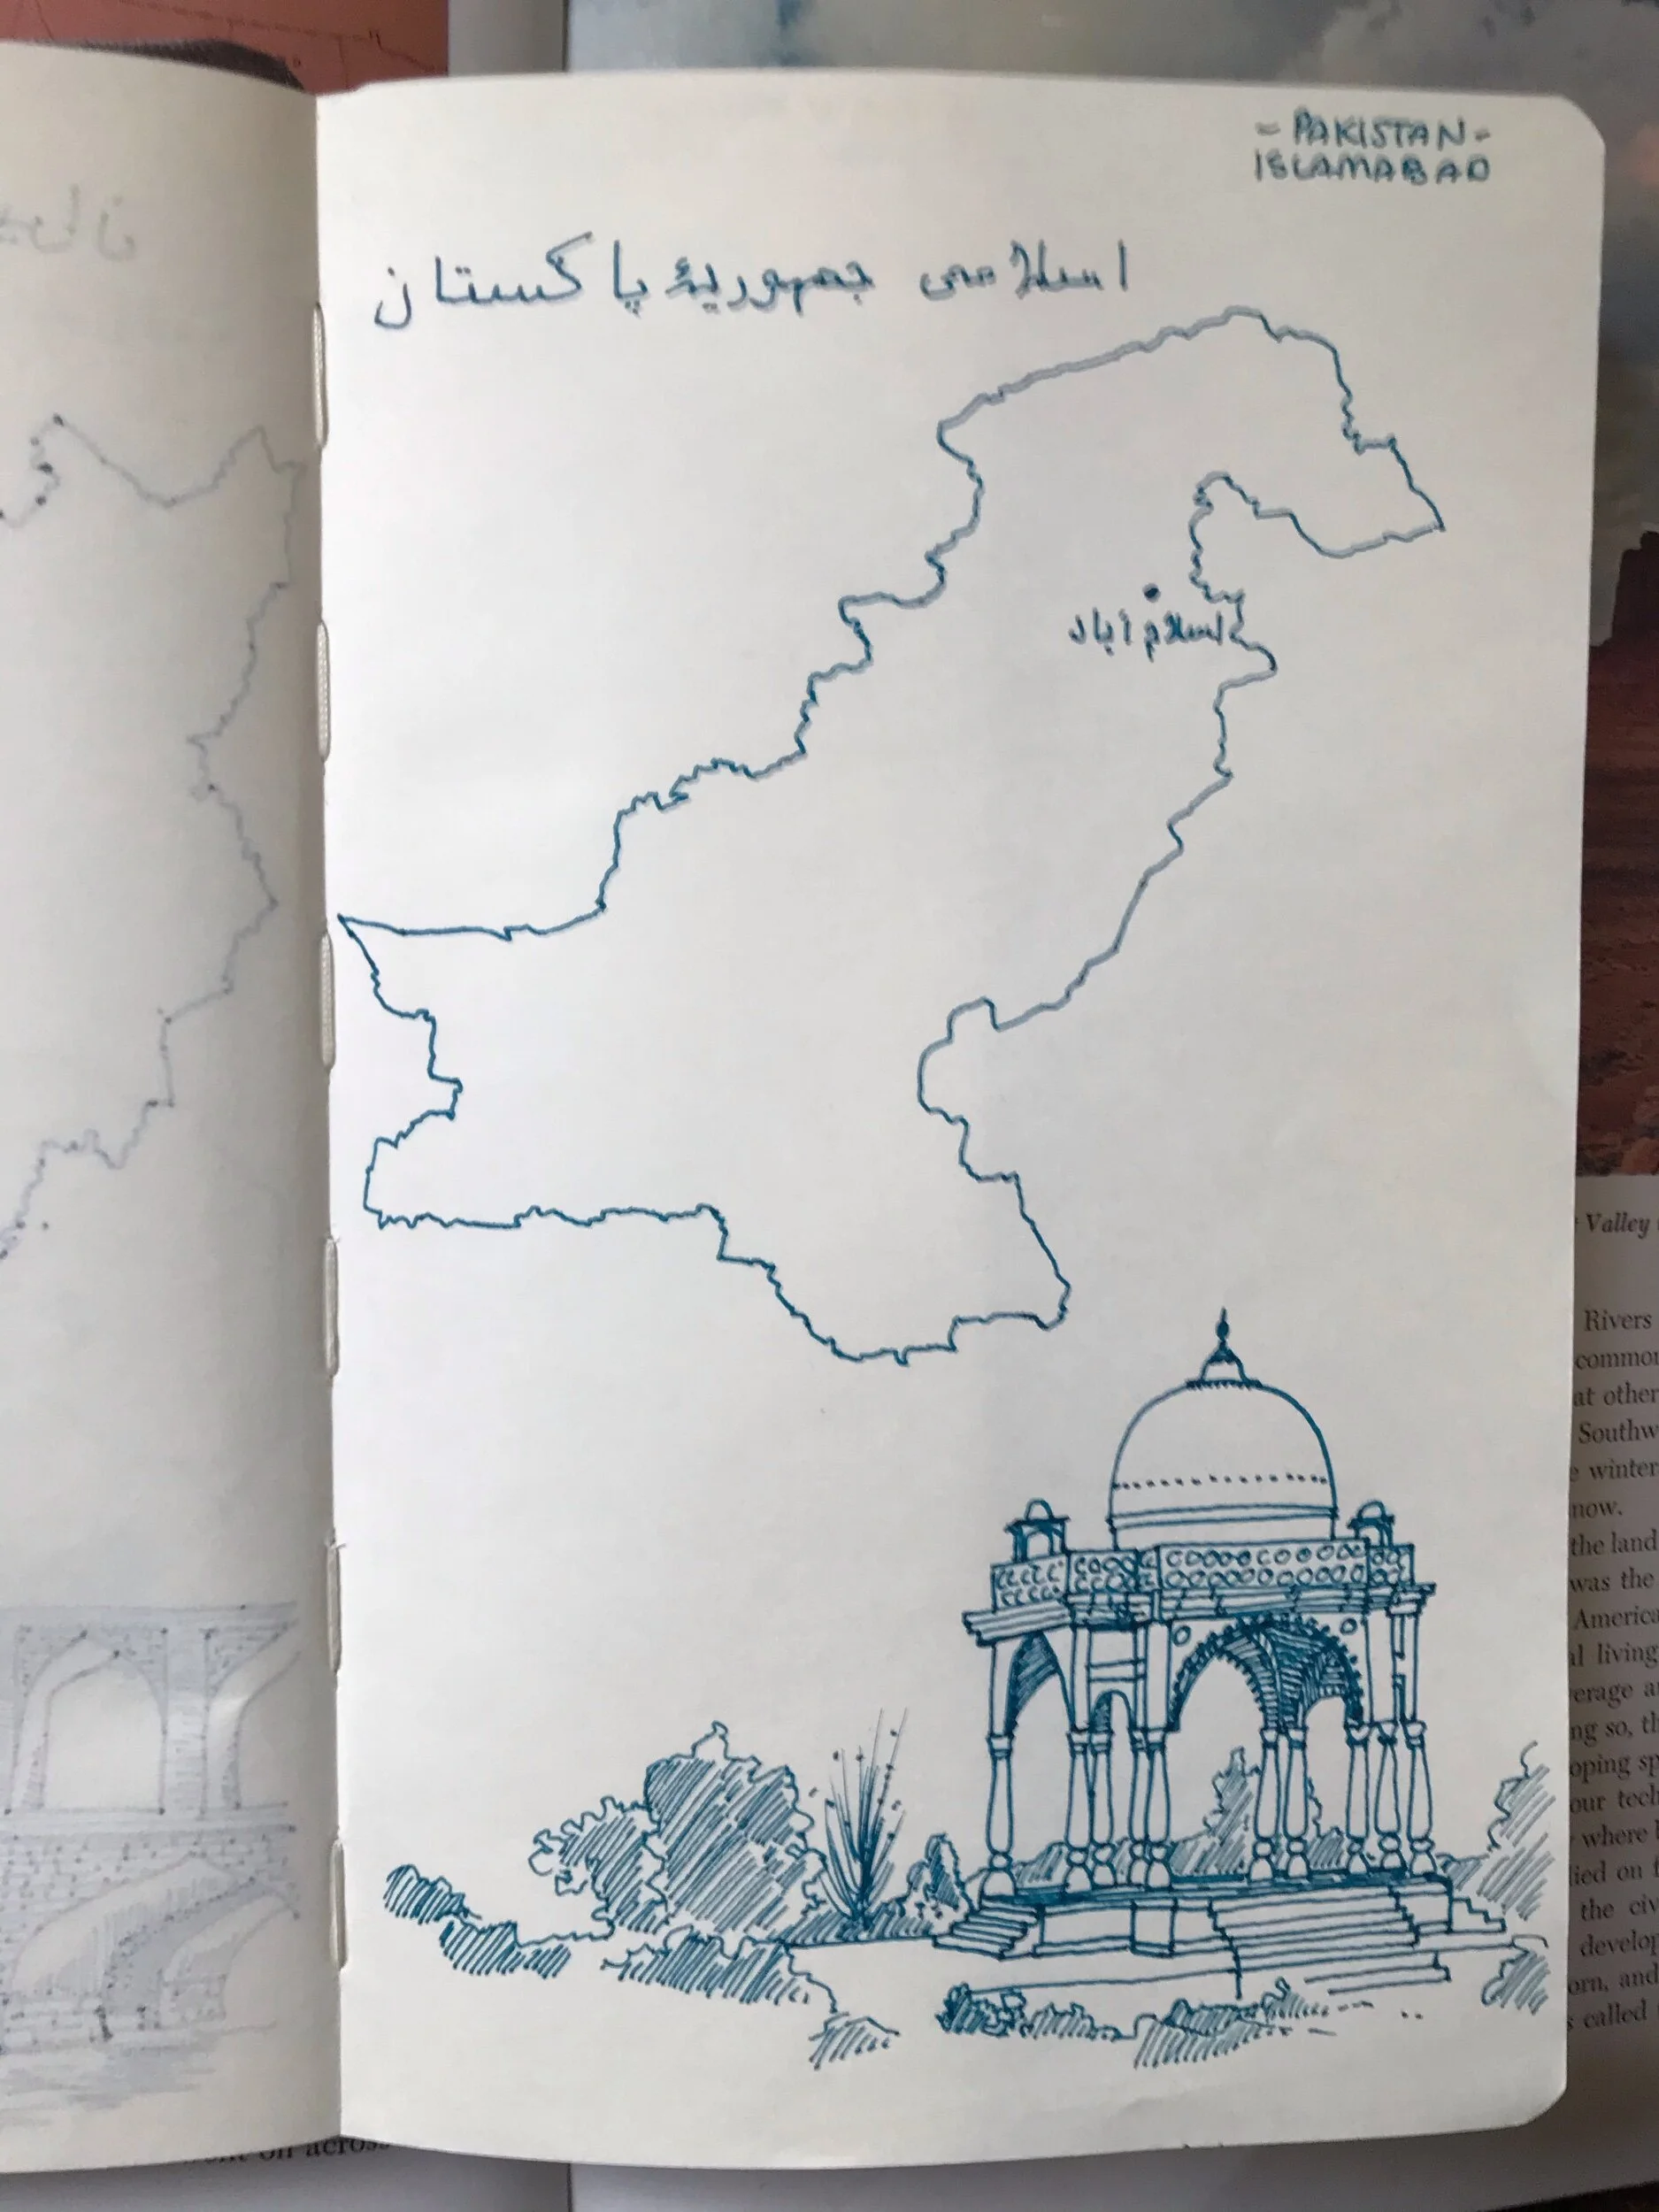 - PAKISTAN -
ISLAMABAD
اسلامی جمہوریۂ پاکستان
اسلام آباد
Valley
Rivers
at other
Southw
winter
now.
the land
was the
America
living
so, th
where
lied on
the civ
develop
orn, and
called
on across